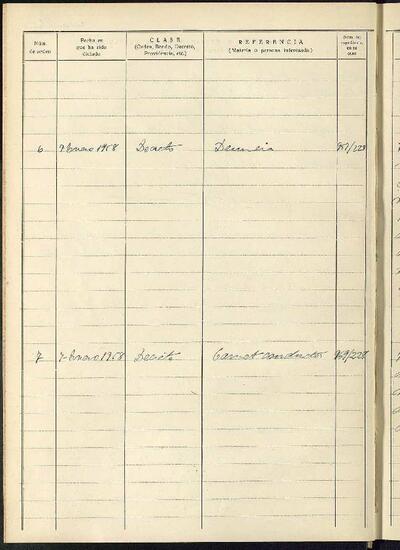 Núm. de orden
Fecha en que ha sido dictado
CLASE
(Orden, Bando, Decreto, Providencia, etc.)
REFERENCIA
(Materia o persona interesada)
6 Enero 1958 Decreto Denuncia /228
7 7-Enero 1958 Decreto Carnet conductor 969/228